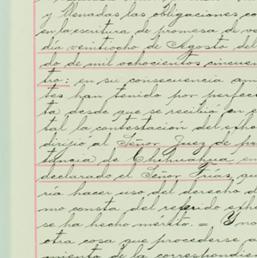 y llenadas las obligaciones co
en la escritura de promesa de ve
dia veintiocho de Agosto del
do de mil ochocientos cincuen
tro: en su consecuencia am
tes han tenido por perfec
ta desde que se recibió en
tal la contestacion del
dirijió al Señor Juez de pr
tancia de Chihuahua en
declarado el Señor Frías, que
ría hacer uso del derecho d
mo consta del referido
se ha hecho mérito. = Y no
otra cosa que procederse a
miento de la correspondien